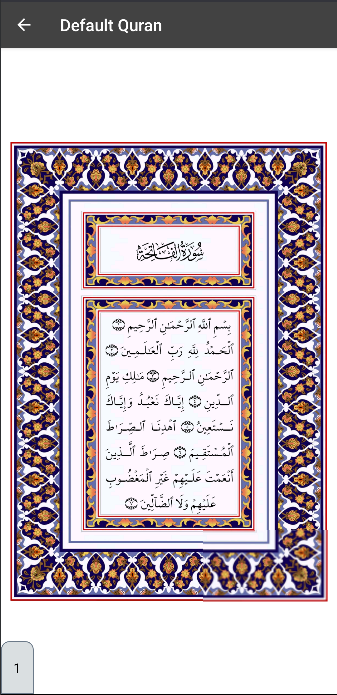 Default Quran
سُورَةُ الْفَاتِحَةِ
بِسْمِ ٱللَّهِ ٱلرَّحْمَٰنِ ٱلرَّحِيمِ ۝
ٱلْحَمْدُ لِلَّهِ رَبِّ ٱلْعَٰلَمِينَ ۝
ٱلرَّحْمَٰنِ ٱلرَّحِيمِ ۝ مَٰلِكِ يَوْمِ
ٱلدِّينِ ۝ إِيَّاكَ نَعْبُدُ وَإِيَّاكَ
نَسْتَعِينُ ۝ ٱهْدِنَا ٱلصِّرَٰطَ
ٱلْمُسْتَقِيمَ ۝ صِرَٰطَ ٱلَّذِينَ
أَنْعَمْتَ عَلَيْهِمْ غَيْرِ ٱلْمَغْضُوبِ
عَلَيْهِمْ وَلَا ٱلضَّآلِّينَ ۝
1